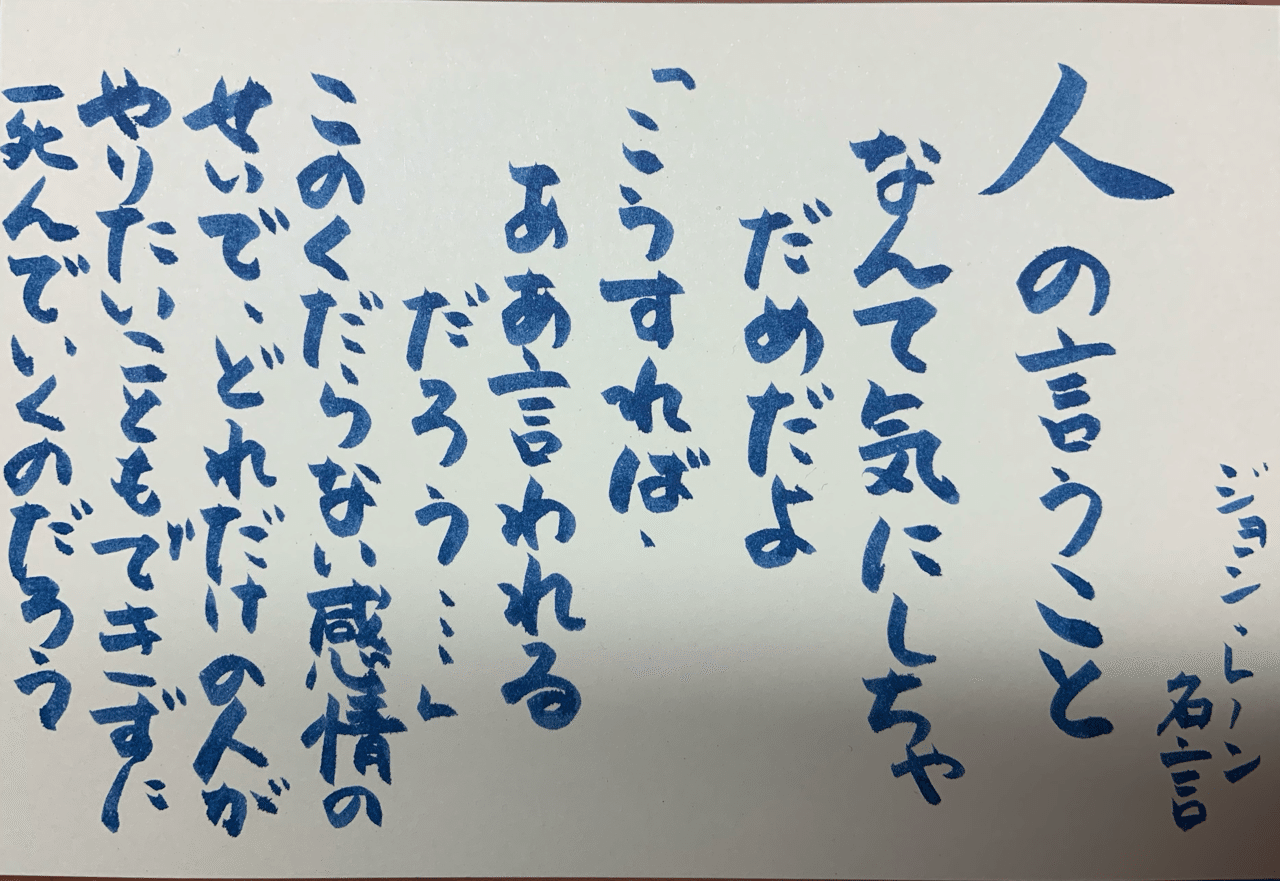 ジョン・レノン
名言
人の言うこと
なんて気にしちゃ
だめだよ
「こうすれば、
ああ言われる
だろう…」
このくだらない感情の
せいで、どれだけの人が
やりたいこともできずに
死んでいくのだろう